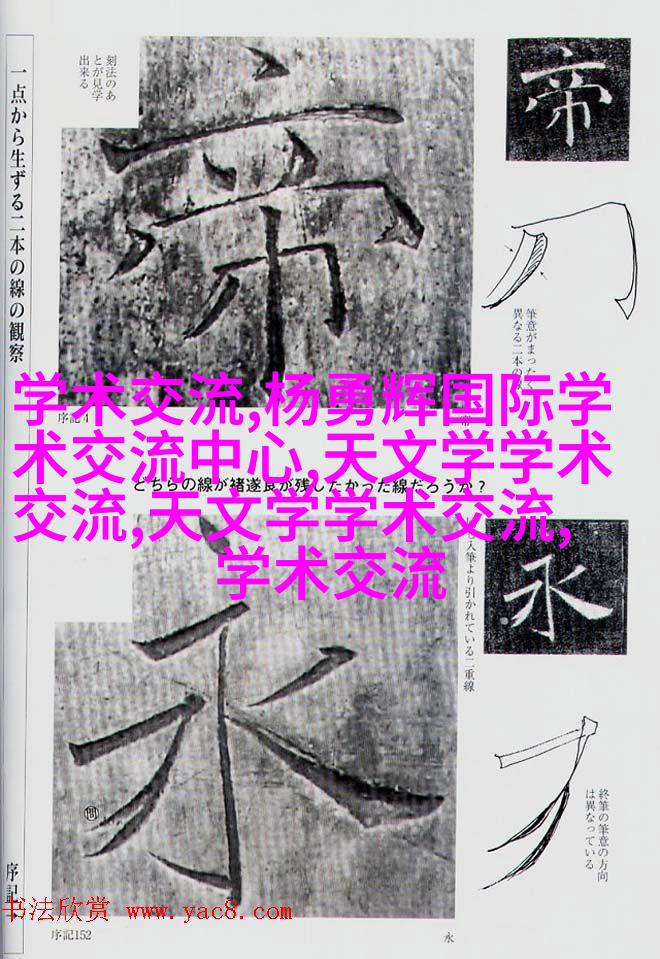 一点から生ずる二本の線の観察
刻法のあ
とが見学
出来る
帝
帝
筆意がまった
異なる二本の
序記4
学术交流,杨勇辉国际学
术交流中心,天文学学术
交流,天文学学术交流,
学术交流
どちらの線が褚遂良が残したかった線だろうか？
永
永
入筆より引かれている二重線
終筆の筆意の方向
は異なっている
序記
书法欣赏 www.yac8.com
序記152
永